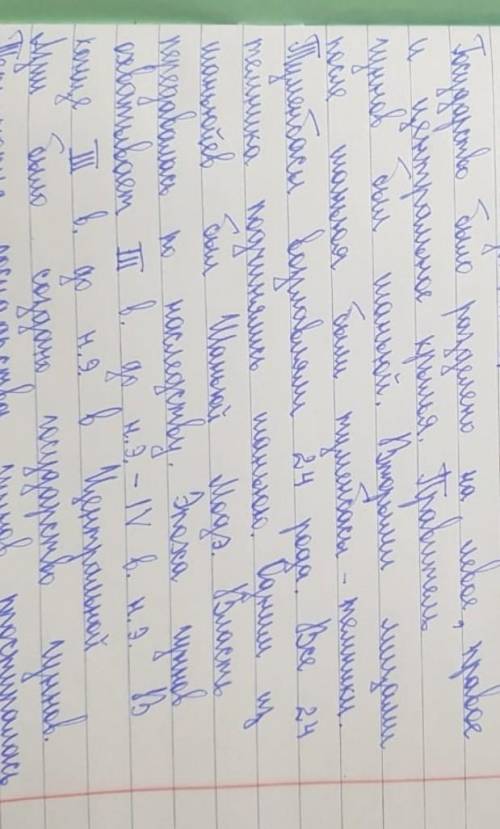 Государство было разделено на левое, правое
и центральное крылья. Правитель
гуннов был шаньюй. Вторыми лицами
после шаньюя были туменбасы - темники.
Туменбасы возглавляли 24 рода. Все 24
темника подчинялись шаньюю. Одним из
шаньюев был Шаньюй Модэ. Власть
передавалась по наследству. Эпоха гуннов
охватывает III в. до н.э. - IV в. н.э. В
конце III в. до н.э. в Центральной
Азии было создано государство гуннов.
государства гуннов простиралась